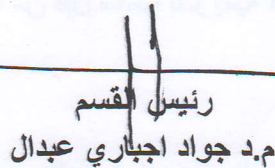 رئيس القسم
م.د جواد اجباري عبدال